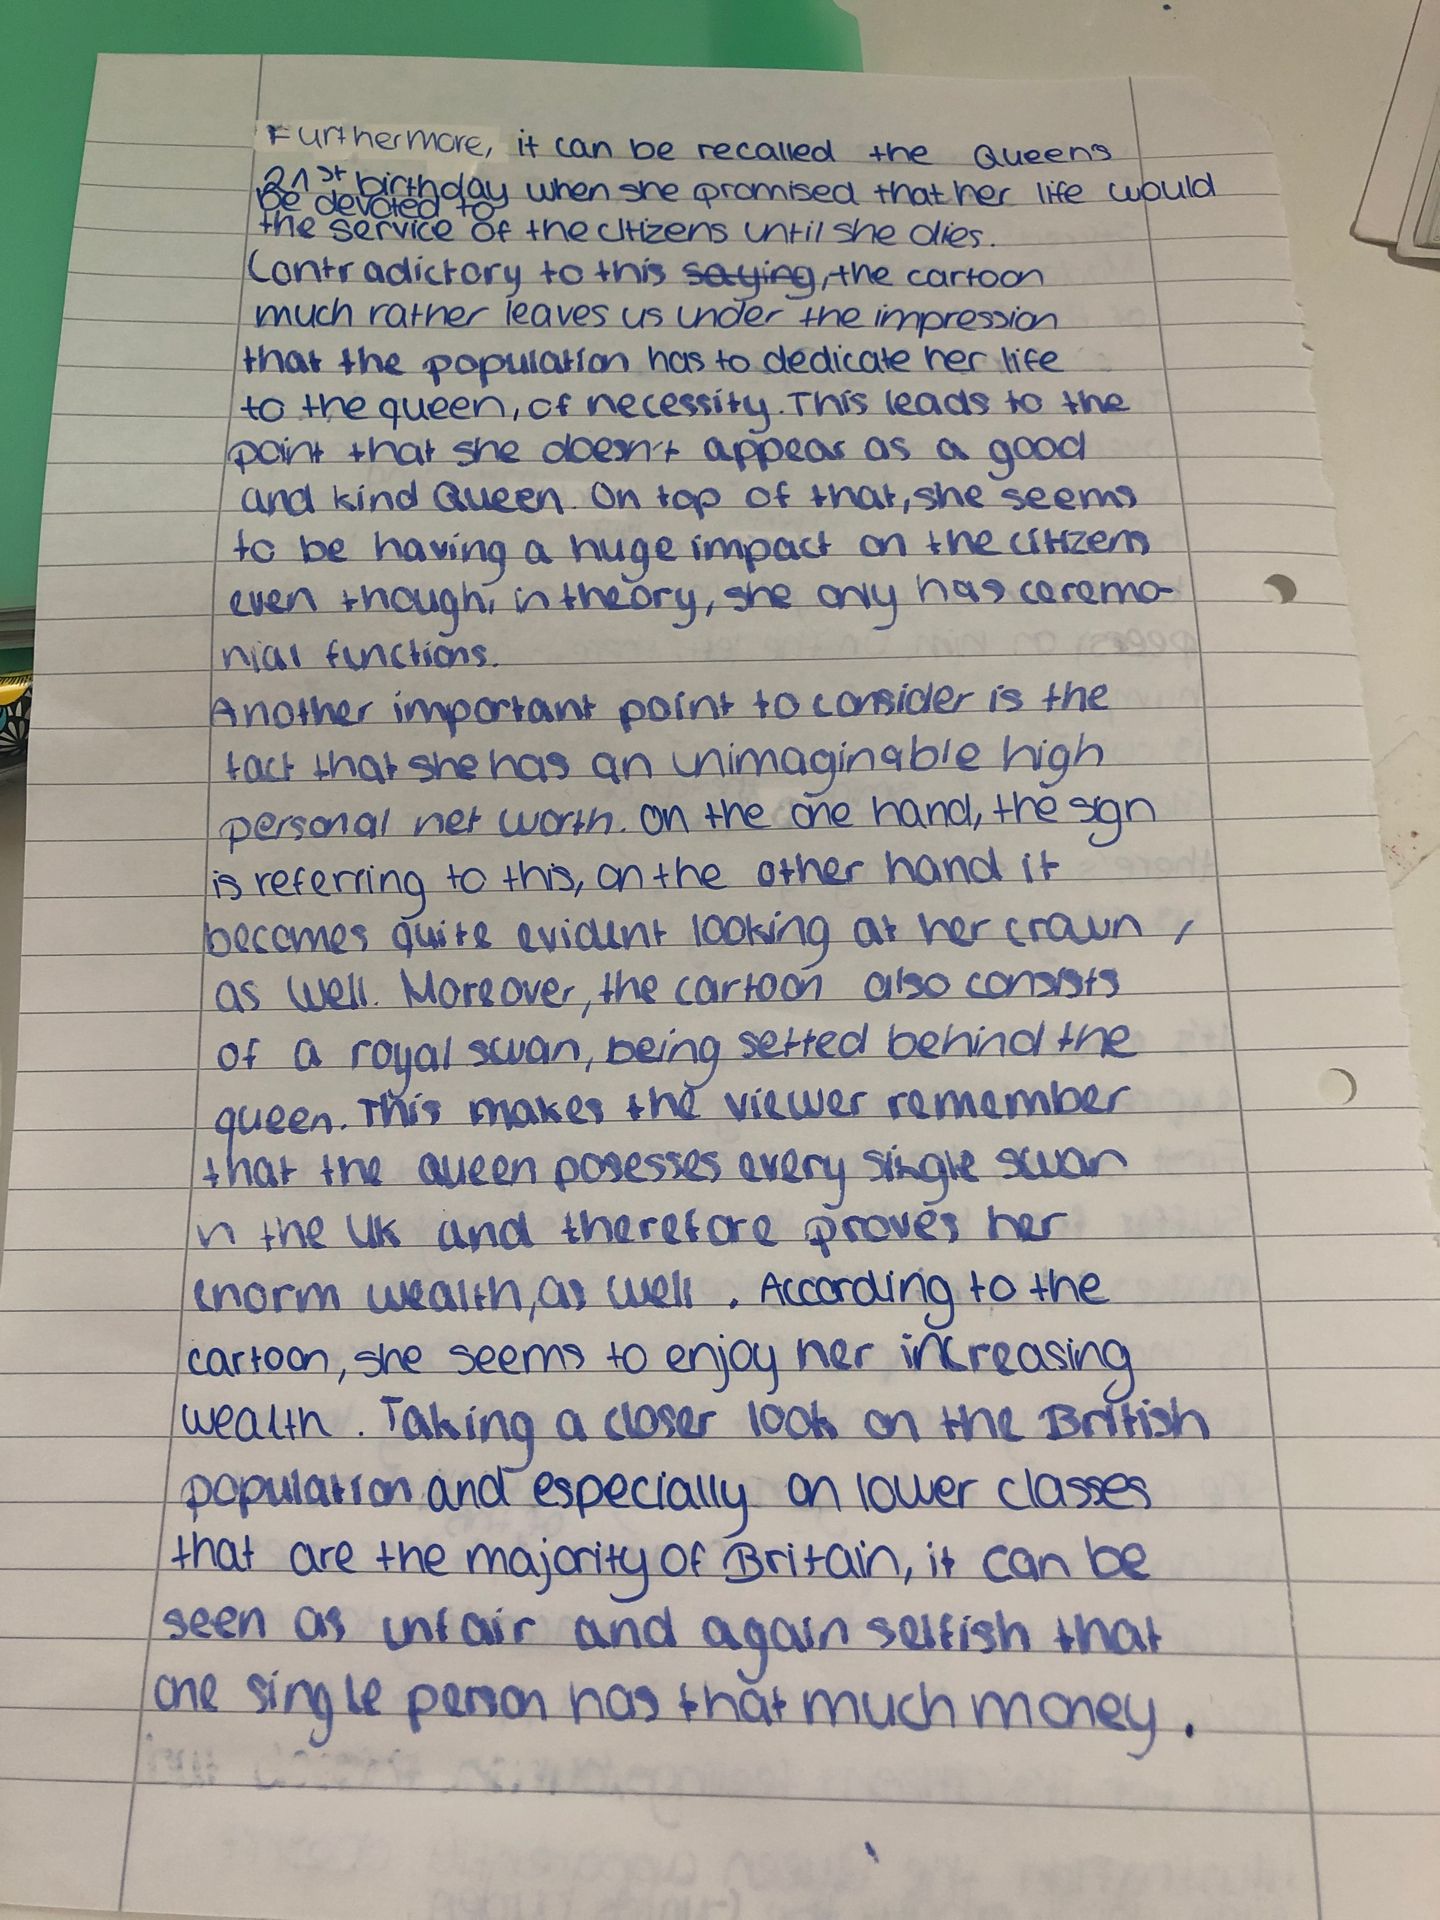 Furthermore, it can be recalled the Queens
21st birthday when she promised that her life would
be devoted to
the service of the citizens until she dies.
Contradictory to this saying, the cartoon
much rather leaves us under the impression
that the population has to dedicate her life
to the queen, of necessity. This leads to the
point that she doesn't appear as a good
and kind Queen. On top of that, she seems
to be having a huge impact on the citizens
even though, in theory, she only has ceremo-
nial functions.
Another important point to consider is the
fact that she has an unimaginable high
personal net worth. On the one hand, the sign
is referring to this, on the other hand it
becomes quite evident looking at her crown,
as well. Moreover, the cartoon also consists
of a royal swan, being setted behind the
queen. This makes the viewer remember
that the queen posesses every single swan
in the UK and therefore proves her
enorm wealth, as well. According to the
cartoon, she seems to enjoy her increasing
wealth. Taking a closer look on the British
population and especially on lower classes
that are the majority of Britain, it can be
seen as unfair and again selfish that
one single person has that much money.